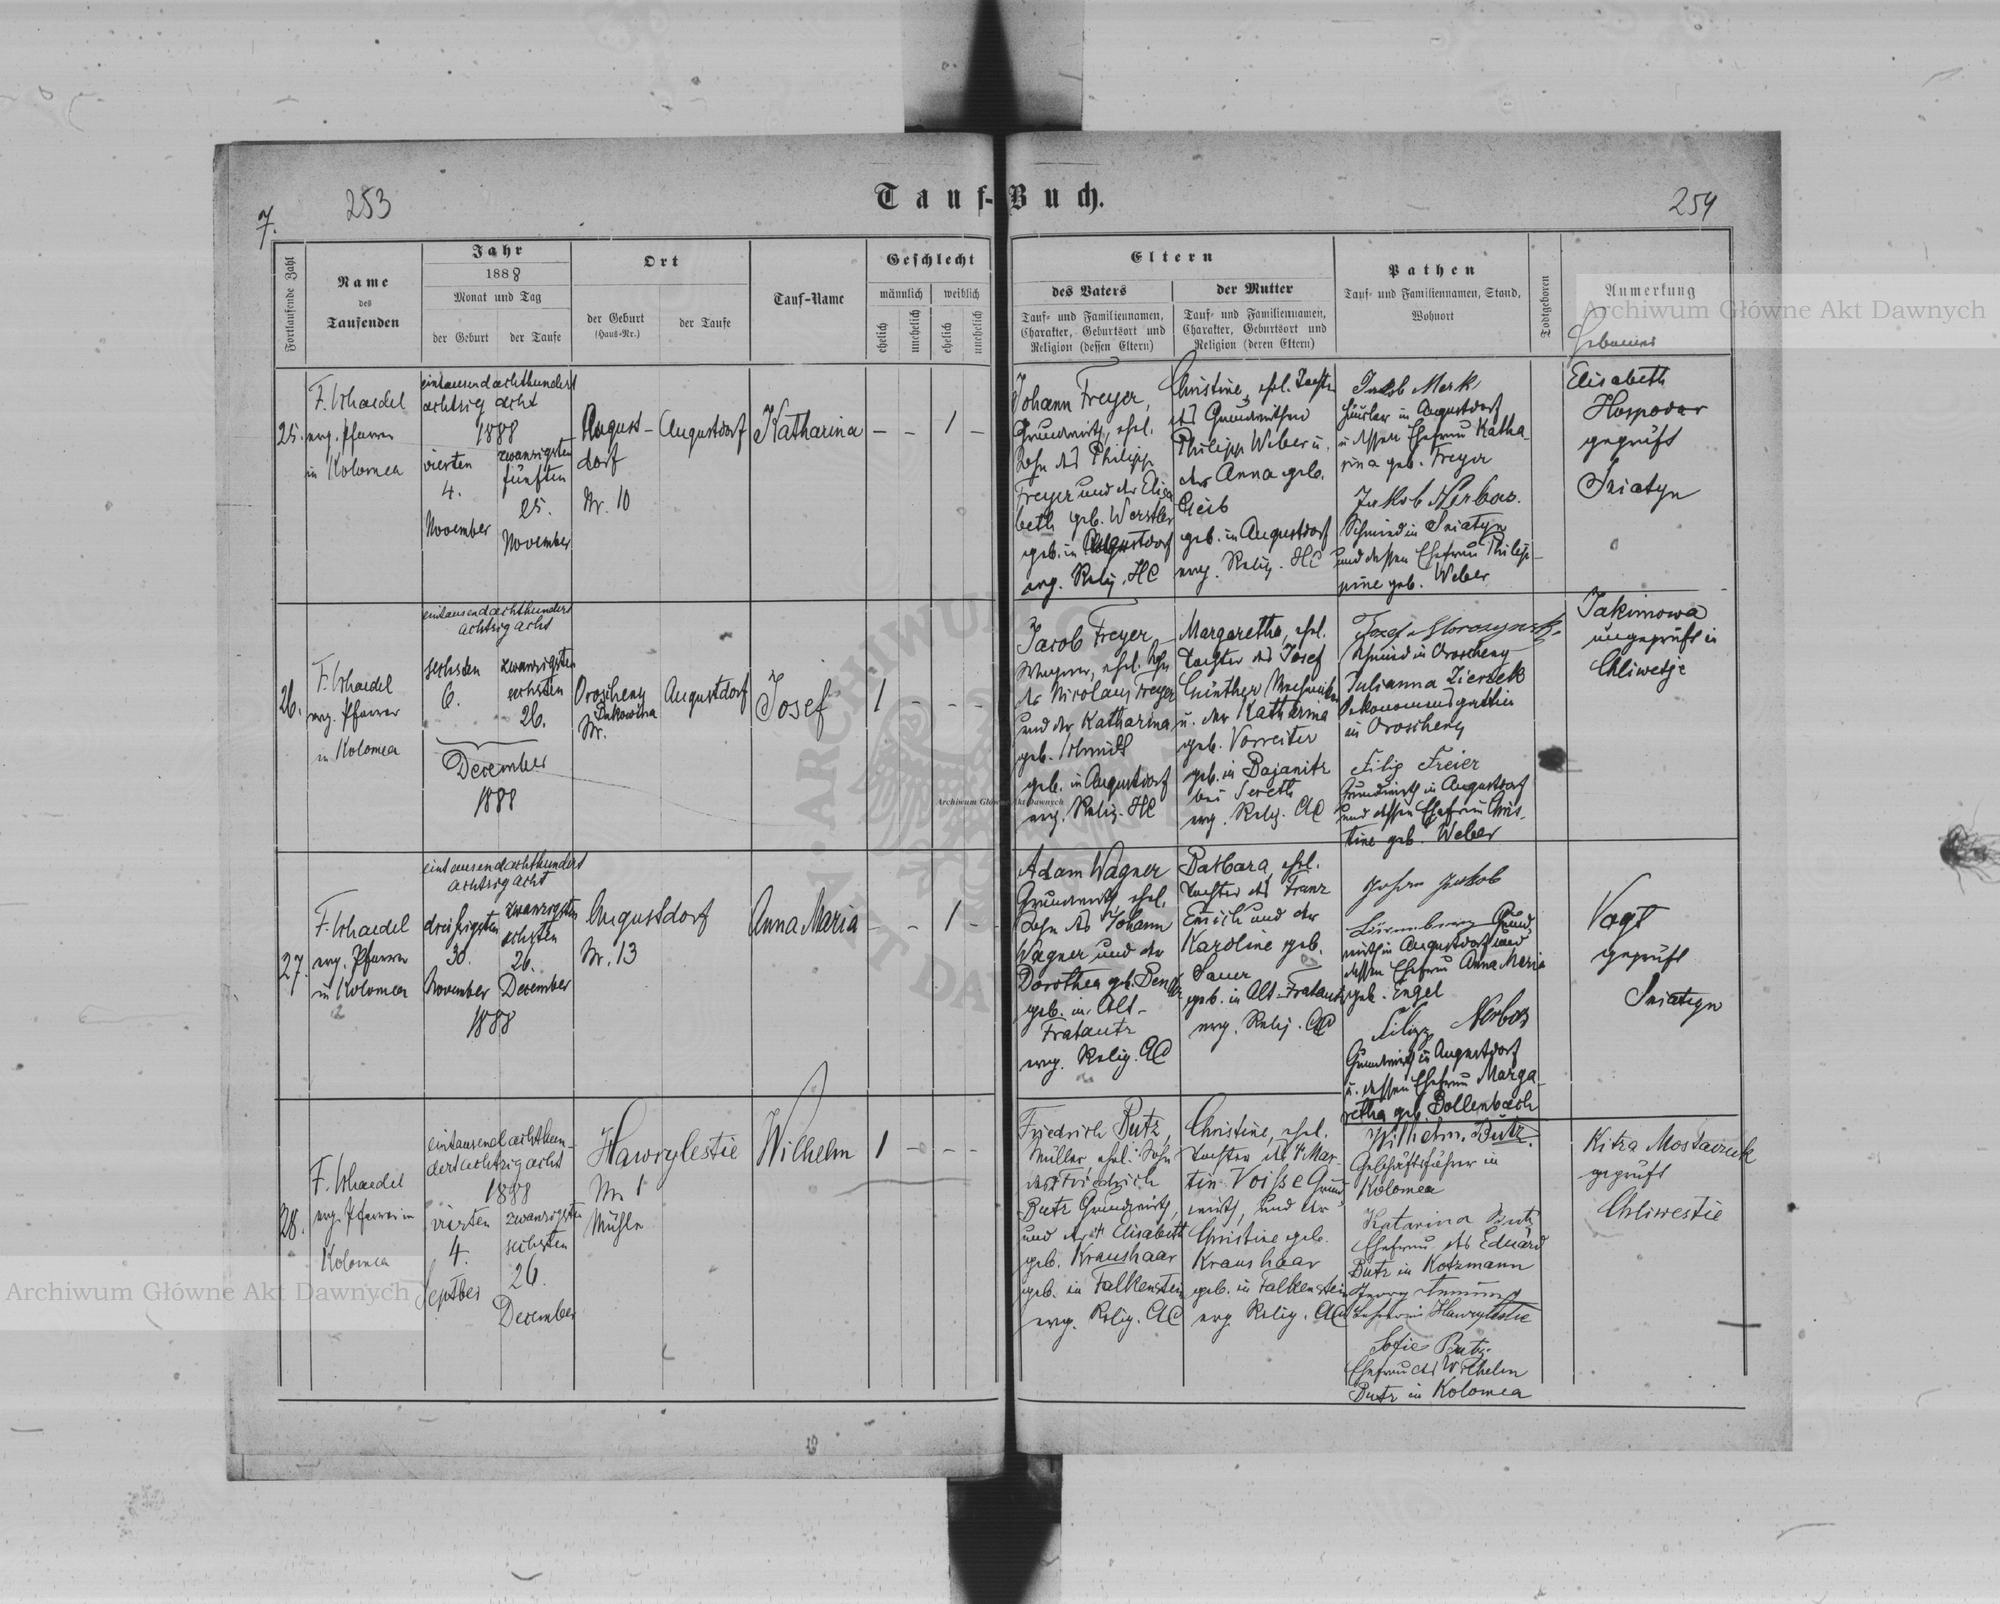 7.
253
Tauf-Buch.
254
Fortlaufende Zahl
Name
des
Taufenden
Jahr
1888
Monat und Tag
der Geburt
der Taufe
Ort
der Geburt
(Haus-Nr.)
der Taufe
Tauf-Name
Geschlecht
männlich
weiblich
ehelich
unehelich
ehelich
unehelich
Eltern
des Vaters
Tauf- und Familiennamen,
Charakter, Geburtsort und
Religion (dessen Eltern)
der Mutter
Tauf- und Familiennamen,
Charakter, Geburtsort und
Religion (deren Eltern)
Pathen
Tauf- und Familiennamen, Stand,
Wohnort
Todtgeboren
Anmerkung
25.
evg. Pfarrer
in Kolomea
eintausendachthundert
achtzig acht
1888
vierten
4.
November
zwanzigsten
fünften
25.
November
August-
dorf
Nr. 10
Augustdorf
Katharina
— - 1 -
Johann Freyer,
Grundwirth, ehel.
Sohn des Philipp
Freyer und der Elisa
beth geb. Werstler
geb. in Augustdorf
evg. Relig. HC
Christine, ehel. Tochter
des Grundwirthen
Philipp Weber u.
der Anna geb.
geb. in Augustdorf
evg. Relig. HC
Jakob Merk
Häusler in Augustdorf
u. dessen Ehefrau Katha-
rina geb. Freyer
Jakob Nerbas.
Schmied in Sniatyn
und dessen Ehefrau Philip-
pine geb. Weber
Elisabeth
Hospodar
geprüft
Sniatyn
26.
evg. Pfarrer
in Kolomea
eintausendachthundert
achtzig acht
sechsten
6.
zwanzigsten
sechsten
26.
December
1888
Oroscheny
Bukowina
Nr.
Augustdorf
Josef
1 - - -
Jacob Freyer
Wagner, ehel. Sohn
des Nicolaus Freyer
und der Katharina
geb. Schmidt
geb. in Augustdorf
evg. Relig. HC
Margaretha, ehel.
Tochter des Josef
Günther
u. der Katharina
geb. Vorreiter
geb. in Bajanitz
bei Sereth
evg. Relig. AC
Schmied in Oroscheny
Julianna
Oekonomensgattin
in Oroscheny
Filip Freier
Grundwirth in Augustdorf
und dessen Ehefrau Chris-
tine geb. Weber
Jakimowa
ungeprüft in
27.
evg. Pfarrer
in Kolomea
eintausendachthundert
achtzig acht
dreißigsten
30.
November
zwanzigsten
sechsten
26.
December
1888
Augustdorf
Nr. 13
Anna Maria
- - 1 -
Adam Wagner
Grundwirth, ehel.
Sohn des Johann
Wagner und der
Dorothea geb. Bender
geb. in Alt-
Fratautz
evg. Relig. AC
Barbara, ehel.
Tochter des Franz
Emich und der
Karoline geb.
Sauer
geb. in Alt-Fratautz
evg. Relig. AC
Johan Jakob
Grund-
wirth in Augustdorf und
dessen Ehefrau Anna Maria
geb. Engel
Filipp Nerbas
Grundwirth in Augustdorf
u. dessen Ehefrau Marga-
retha geb. Bollenbach
Vogt
geprüft
Sniatyn
28.
evg. Pfarrer in
Kolomea
eintausend achthun-
dertachtzigacht
1888
vierten
4.
Septber
zwanzigsten
sechsten
26.
December
Hawrylestie
Nr. 1
Mühle
Wilhelm
1 - - -
Friedrich Butz,
Müller, ehel. Sohn
des Friedrich
Butz Grundwirth,
und der Elisabeth
geb. Kraushaar
geb. in Falkenstein
evg. Relig. AC
Christine, ehel.
Tochter des Mar-
tin Voisse Grund-
wirth, und der
Christine geb.
Kraushaar
geb. in Falkenstein
evg. Relig. AC
Wilhelm Butz.
Geschäftsführer in
Kolomea
Katarina Butz
Ehefrau des Eduard
Butz in Kotzmann
Lehrer in Hawrylestie
Sofie Butz
Ehefrau des Wilhelm
Butz in Kolomea
Kitza
geprüft
Chliwestie
Archiwum Główne Akt Dawnych
Archiwum Główne Akt Dawnych
Archiwum Główne Akt Dawnych